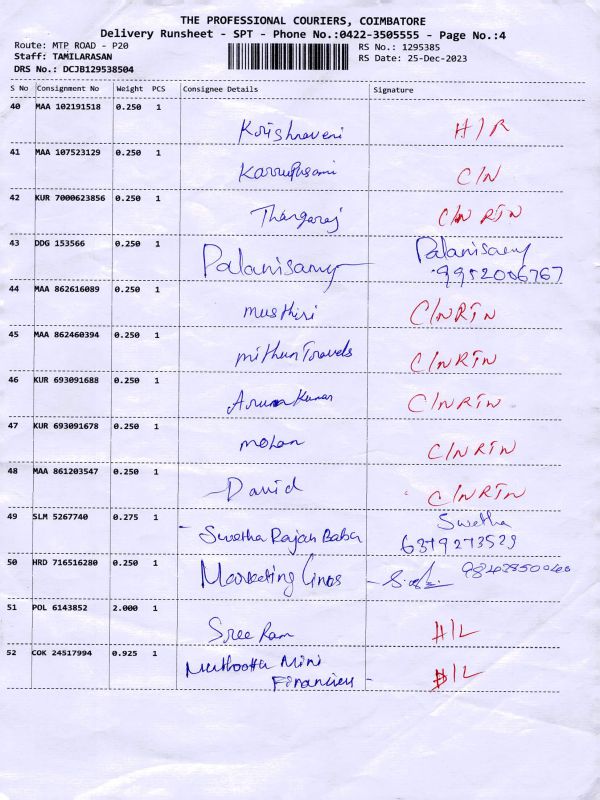 THE PROFESSIONAL COURIERS, COIMBATORE
Delivery Runsheet - SPT - Phone No.:0422-3505555 - Page No.:4
Route: MTP ROAD - P20
Staff: TAMILARASAN
DRS No.: DCJB129538504
RS No.: 1295385
RS Date: 25-Dec-2023
S No Consignment No Weight PCS Consignee Details Signature
40 MAA 102191518 0.250 1
Krishnaveni H/R
41 MAA 107523129 0.250 1
Karruphsami C/N
42 KUR 7000623856 0.250 1
Thangaraj C/N RTN
43 DDG 153566 0.250 1
Palanisamy Palanisamy
9952006767
44 MAA 862616089 0.250 1
musthiri C/NRTN
45 MAA 862460394 0.250 1
mithun Travels C/NRTN
46 KUR 693091688 0.250 1
Aruna Kumar C/NRTN
47 KUR 693091678 0.250 1
mohan C/NRTN
48 MAA 861203547 0.250 1
David C/NRTN
49 SLM 5267740 0.275 1
Swetha Rajan Babu Swetha
6379273529
50 HRD 716516280 0.250 1
Marketing lines
51 POL 6143852 2.000 1
Sree Ram H/L
52 COK 24517994 0.925 1
Muthootta Mini